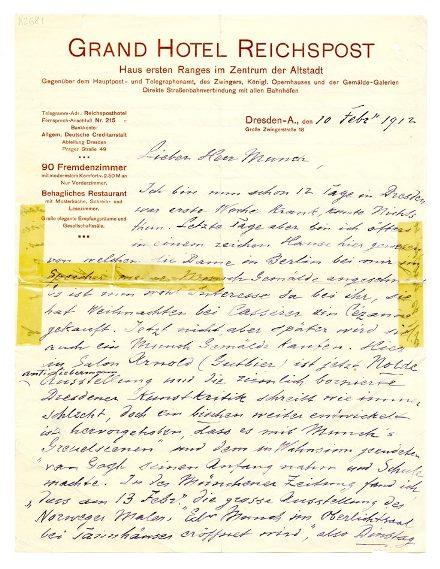 K2681
GRAND HOTEL REICHSPOST
Haus ersten Ranges im Zentrum der Altstadt
Gegenüber dem Hauptpost- und Telegraphenamt, des Zwingers, Königl. Opernhauses und der Gemälde-Galerien
Direkte Straßenbahnverbindung mit allen Bahnhöfen
Telegramm-Adr.: Reichsposthotel
Fernsprech-Anschluß Nr. 215
Bankkonto:
Allgem. Deutsche Creditanstalt
Abteilung Dresden
Prager Straße 49
90 Fremdenzimmer
mit modernstem Komfort v. 2.50 M an
Nur Vorderzimmer.
Behagliches Restaurant
mit Musterküche, Schreib- und
Lesezimmer.
Große elegante Empfangsräume und
Gesellschaftssäle.
Dresden-A., den 10 Febr 1912
Große Zwingerstraße 18
Lieber Herr Munch,
Ich bin nun schon 12 Tage in Dresden
war erste Woche krank, konnte Nichts
thun. Letzte Tage aber bin ich öfters
in einem reichen Hause hier gewesen
von welchen die Dame in Berlin bei mir im
Munch Gemälde
Es ist nun wohl Interesse da bei ihr, sie
hat Weihnachten bei Cassirer ein Cézanne
gekauft. Jetzt nicht aber später wird sie
auch ein Munch Gemälde kaufen. Hier
in Salon Arnold (Gutbier) ist jetzt Nolde
Ausstellung und die ziemlich bornierte
Dresdener Kunstkritik schreibt wie immer
schlecht, doch ein bischen weiter entwickelt
ist hervorgehoben, dass es mit Munch's
"Greuelscenen" und dem in Wahnsinn geendeten
van Gogh seinen Anfang nahm und Schule
machte. In der Münchener Zeitung fand ich
"dass am 13 Febr. die grosse Ausstellung des
Norweger Malers Edv Munch im Oberlichtsaal
bei Tannhäuser eröffnet wird", also Dienstag